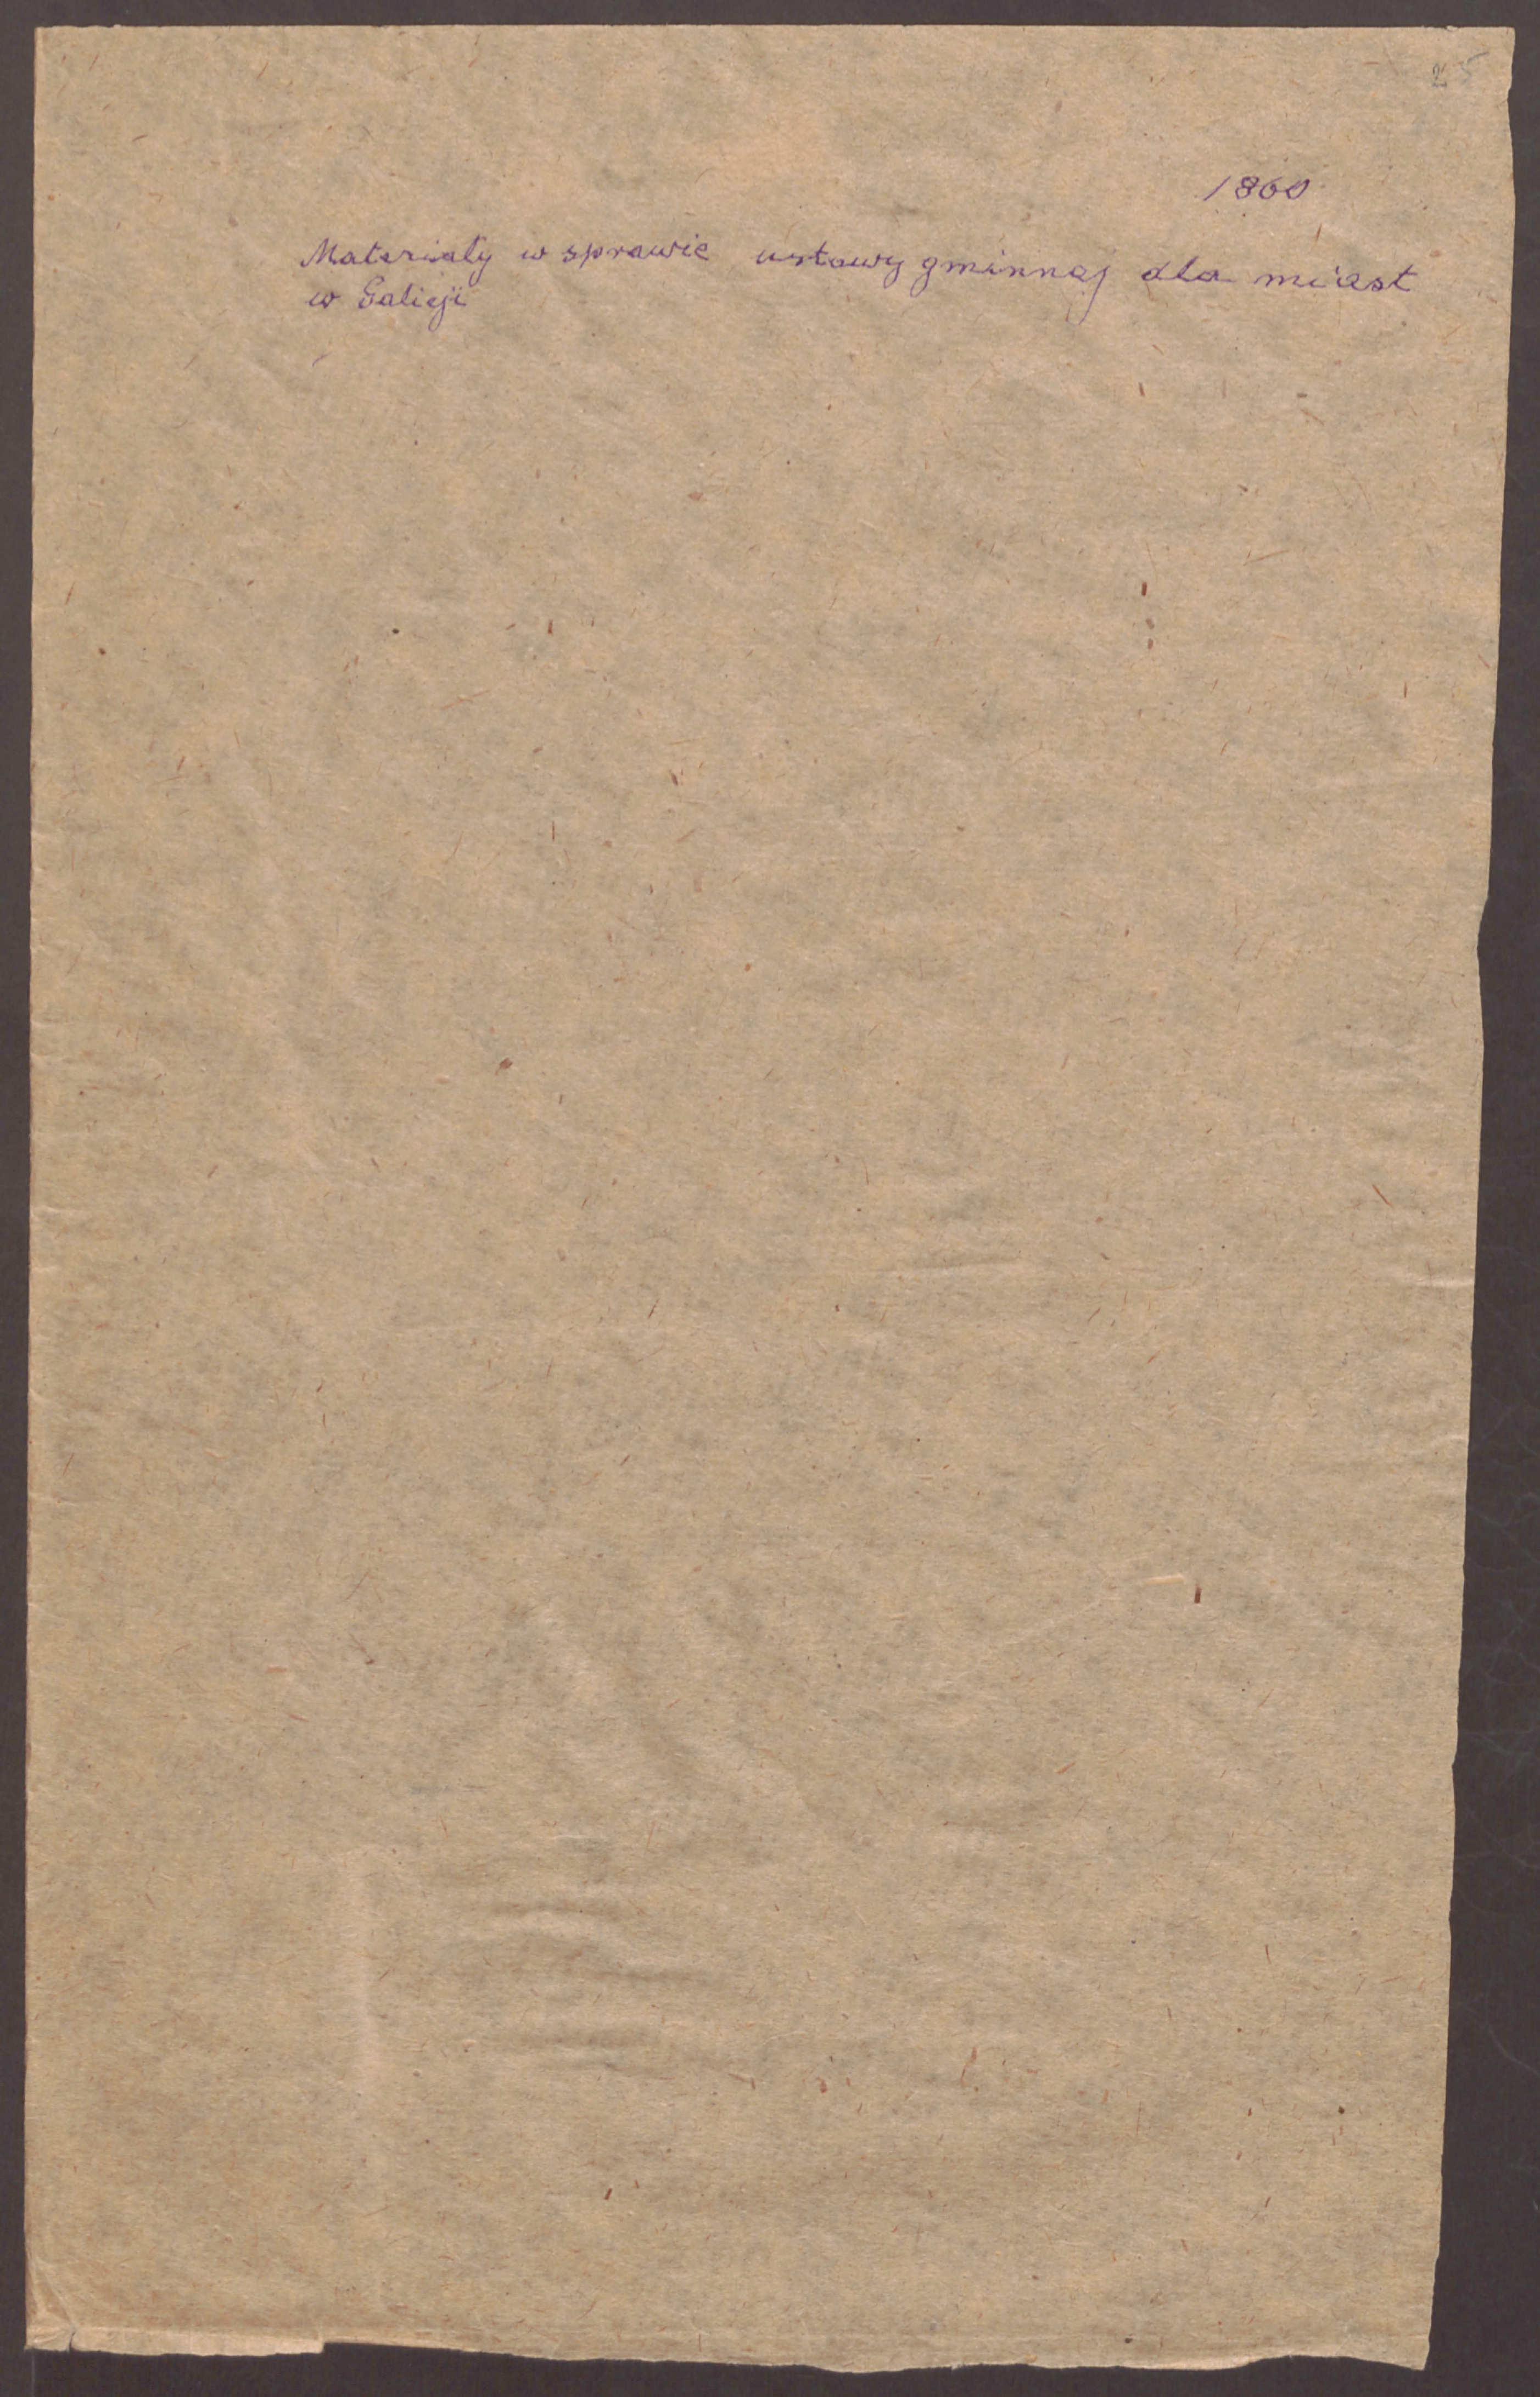 25
1860
Materiały w sprawie ustawy gminnej dla miast
w Galicji